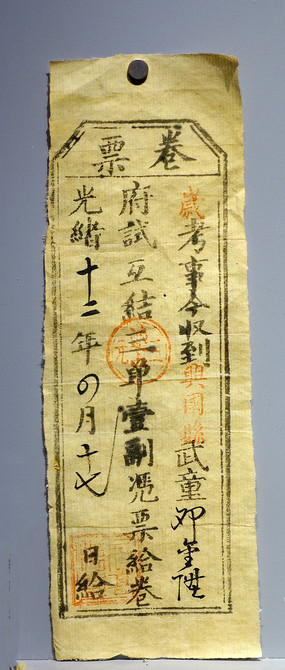 卷票
歲考事今收到興國縣武童邓堃陞
府試互結三單壹副憑票給卷
光緒十二年四月十七日給